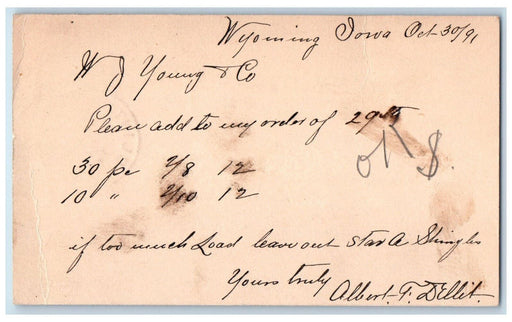 Wyoming Iowa Oct 30/91
W J Young & Co
Please add to my order of 29th
30 pc 2/8 12
10 " 2/10 12
if too much Load leave out Star A Shingles
Yours truly
Albert F. Dillit.